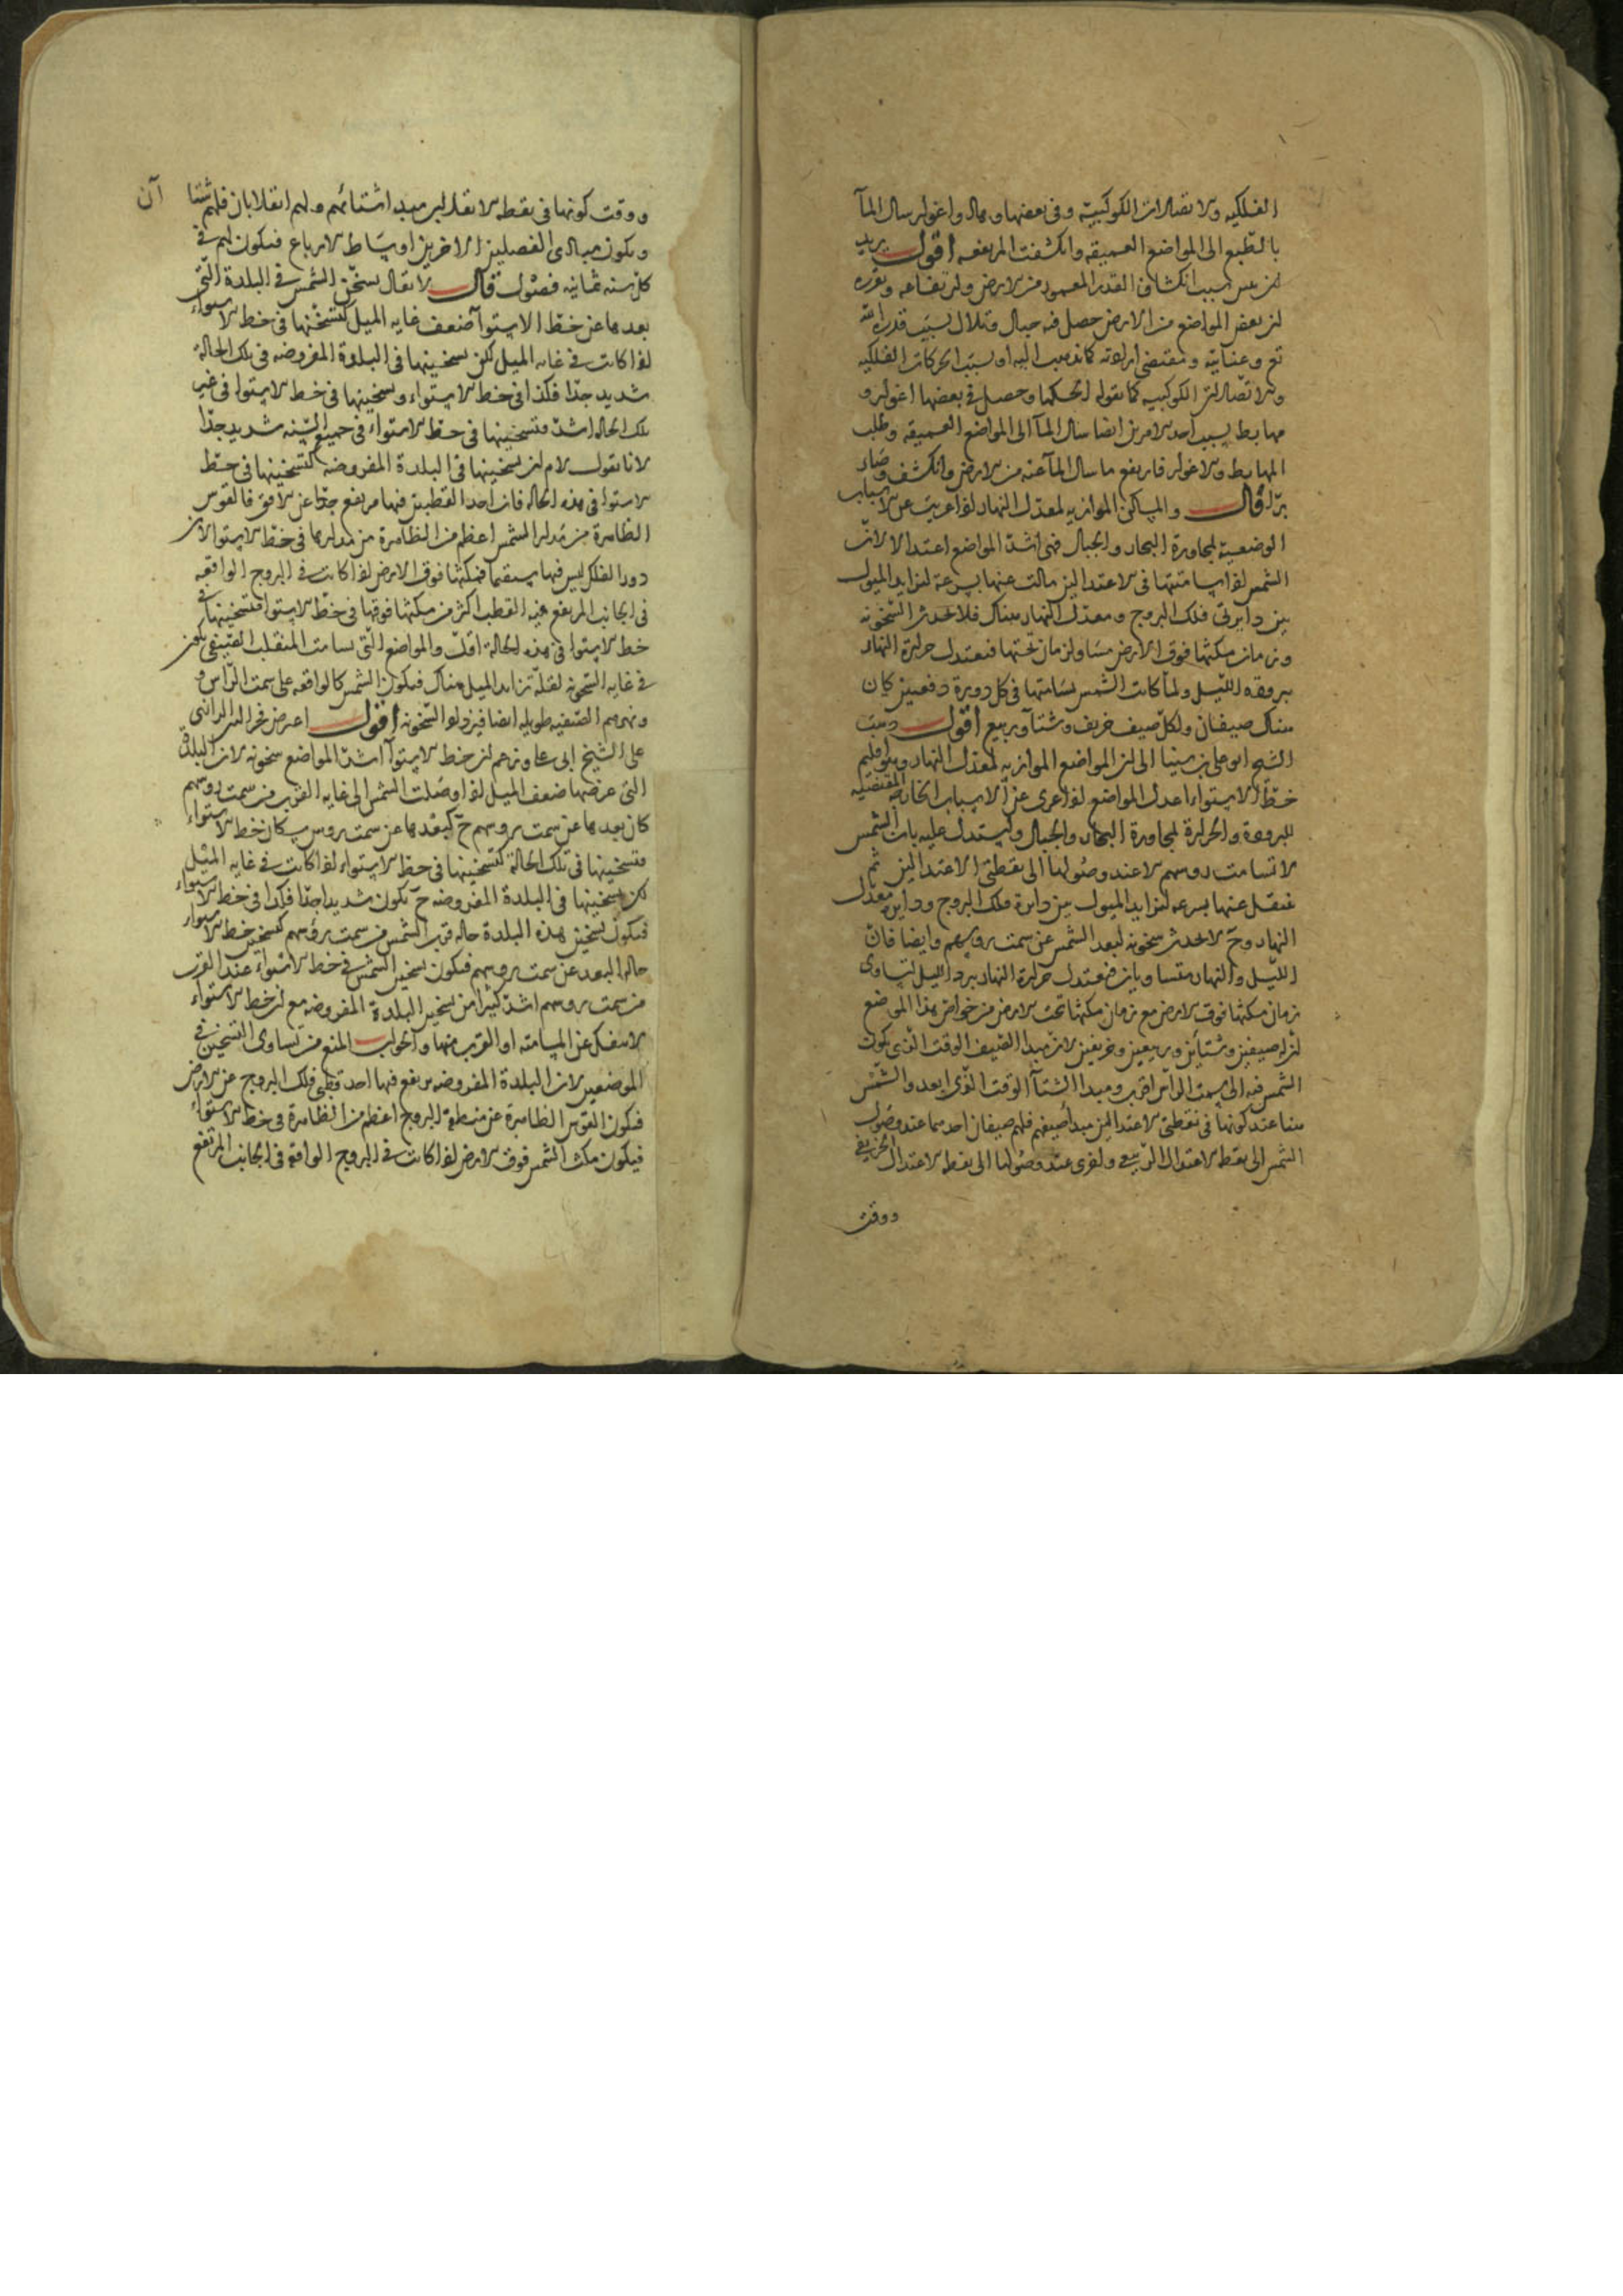 الفلكيه والاتصالات الكوكبية وفي بعضها وهاد واغوار سال المآ
بالطبع الى المواضع العميقه وانكشفت المرتفعه اقول يريد
ان يبين سبب انكشاف القدر المعمور من الارض وارتفاعه وتقريره
ان بعض المواضع من الارض حصل فيه جبال وتلال بسبب قدرة الله
تع وعنايته ومقتضى ارادته كما نذهب اليه او بسبب الحركات الفلكيه
والاتصالات الكوكبيه كما يقوله الحكما وحصل في بعضها اغوار و
مهابط بسبب احد الامرين ايضا سال المآ الى المواضع العميقه وطلب
المهابط والاغوار فارتفع ما سال المآ عنه من الارض وانكشف وصار
برّا قال والمساكن الموازيه لمعدل النهار اذا عريت عن الاسباب
الوضعية لمجاورة البحار والجبال فهي اشدّ المواضع اعتدالا لان
الشمس اذا سامتتها في الاعتدالين مالت عنها بسرعة لتزايد الميول
بين دايرتى فلك البروج ومعدل النهار هناك فلا تحدث السخونه
وزمان مكثها فوق الارض مساو لزمان تحتها فتعتدل حرارة النهار
ببرودة الليل ولما كانت الشمس تسامتها في كل دورة دفعتين كان
هناك صيفان ولكل صيف خريف وشتآ وربيع اقول ذهب
الشيخ ابو على بن سينا الى ان المواضع الموازيه لمعدل النهار وهو اقليم
خط الاستواء اعدل المواضع اذا عرى عن الاسباب الخارجه المقتضيه
للبرودة والحرارة لمجاورة البحار والجبال واستدل عليه بان الشمس
لا تسامت رؤسهم الا عند وصولها الى نقطتي الاعتدالين ثم
تنتقل عنها بسرعه لتزايد الميول بين دايرة فلك البروج ودايرة معدل
النهار وح لا تحدث سخونه لبعد الشمس عن سمت رؤسهم وايضا فان
الليل والنهار متساويان فتعتدل حرارة النهار ببرد الليل لتساوى
زمان مكثها فوق الارض مع زمان مكثها تحت الارض من خواص هذا الموضع
ان له صيفين وشتائين وربيعين وخريفين لان مبدا الصيف الوقت الذي يكون
الشمس فيه الى سمت الراس اقرب ومبدا الشتآ الوقت الذي ابعد والشمس
هنا عند كونها في نقطتي الاعتدالين مبدأ صيفهم فلهم صيفان احدهما عند وصول
الشمس الى نقطه الاعتدال الربيعى واخرى عند وصولها الى نقطه الاعتدال الخريفي
ووقت
ووقت كونها في نقطه الانقلابين مبدا شتائهم ولهم انقلابان فلهم شتا آن
ويكون مبادى الفصلين الاخرين اوساط الارباع فيكون لهم في
كل سنه ثمانيه فصول قال لا يقال تسخن الشمس في البلدة التي
بعدها عن خط الاستوآ ضعف غايه الميل كتسخنها في خط الاستواء
اذا كانت في غايه الميل لكن تسخينها في البلدة المفروضه في تلك الحالة
شديد جدّا فكذا في خط الاستواء وتسخينها في خط الاستوا في غير
تلك الحالة اشدّ فتسخينها في خط الاستواء في جميع السنه شديد جدّا
لانا نقول لا م ان تسخينها في البلدة المفروضه كتسخينها في خط
الاستوا في هذه الحاله فان احد القطبين فيها مرتفع جدّا عن الافق فالقوس
الظاهرة من مدار الشمس اعظم من الظاهرة من مدارها في خط الاستوا لان
دور الفلك ليس فيها مستقيما فمكثها فوق الارض اذا كانت في البروج الواقعه
في الجانب المرتفع فيه القطب اكثر من مكثها فوقها في خط الاستوا فتسخينها في
خط الاستوا في هذه الحالة اقل والمواضع التي تسامت المنقلب الصيفى تكون
في غايه السخونه لقلة تزايد الميل هناك فيكون الشمس كالواقعه على سمت الراس و
ونهرهم الصيفيه طويله ايضا فيزداد السخونه اقول اعترض فخر الدين الرازى
على الشيخ ابى على وزعم ان خط الاستوآ اشدّ المواضع سخونه لان البلدة
التي عرضها ضعف الميل اذا وصلت الشمس الى غايه القرب من سمت رؤسهم
كان بعدها عن سمت رؤسهم ح كبعدها عن سمت رؤس سكان خط الاستواء
فتسخينها في تلك الحالة كتسخينها في خط الاستواء اذا كانت في غايه الميل
لكن تسخينها في البلدة المفروضه ح تكون شديدا جدّا فكذا في خط الاستواء
فيكون تسخين هذه البلدة حاله قرب الشمس من سمت رؤسهم كتسخين خط الاستواء
حاله البعد عن سمت رؤسهم فيكون تسخين الشمس في خط الاستواء عند القرب
من سمت رؤسهم اشدّ كثيرا من تسخين البلدة المفروضه مع ان خط الاستواء
لا ينفك عن المسامته او القرب منها والجواب المنع من تساوى التسخين في
الموضعين لان البلدة المفروضه يرتفع فيها احد قطبى فلك البروج عن الارض
فيكون القوس الظاهرة عن منطقة البروج اعظم من الظاهرة في خط الاستواء
فيكون مكث الشمس فوق الارض اذا كانت في البروج الواقعة في الجانب المرتفع